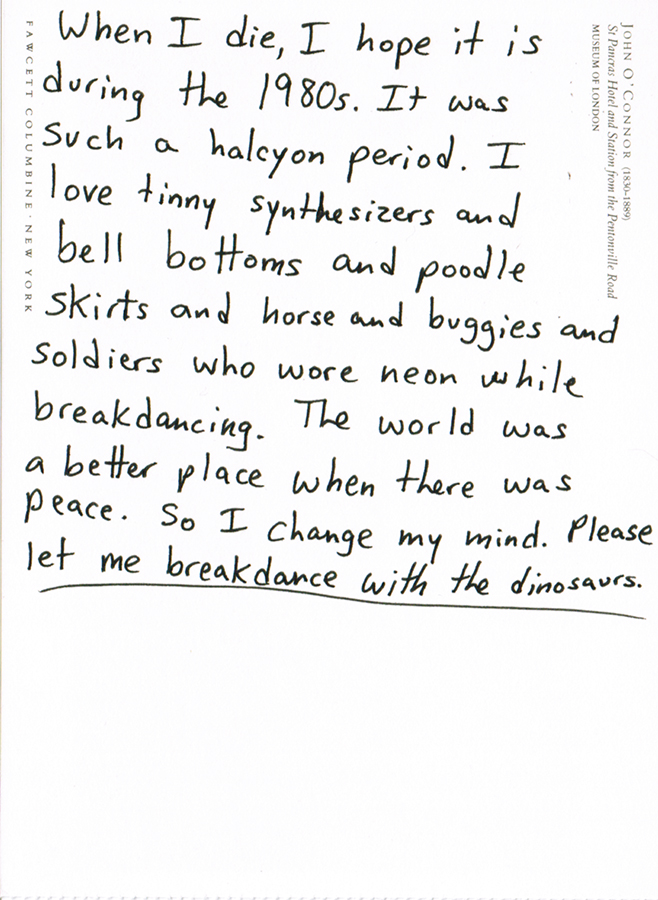 When I die, I hope it is
during the 1980s. It was
such a halcyon period. I
love tinny synthesizers and
bell bottoms and poodle
skirts and horse and buggies and
soldiers who wore neon while
breakdancing. The world was
a better place when there was
peace. So I change my mind. Please
let me breakdance with the dinosaurs.
FAWCETT COLUMBINE · NEW YORK
JOHN O'CONNOR (1830-1889)
St Pancras Hotel and Station from the Pentonville Road
MUSEUM OF LONDON